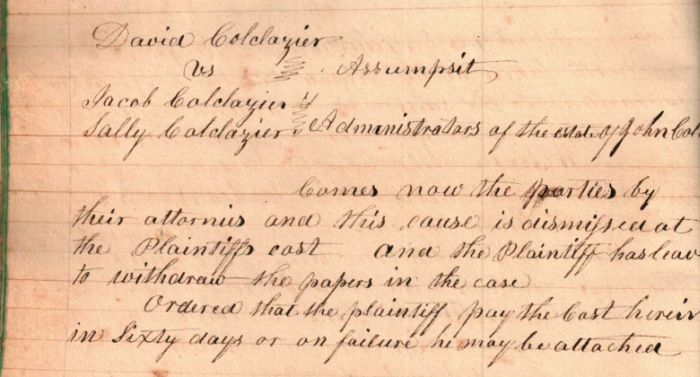 David Colclazier
vs Assumpsit
Jacob Colclazier &
Sally Colclazier Administrators of the estate of John Col
Comes now the parties by
their attornies and this cause is dismissed at
the Plaintiffs cost and the Plaintiff has leav
to withdraw the papers in the case
Ordered that the plaintiff pay the Cost herein
in Sixty days or on failure he may be attached